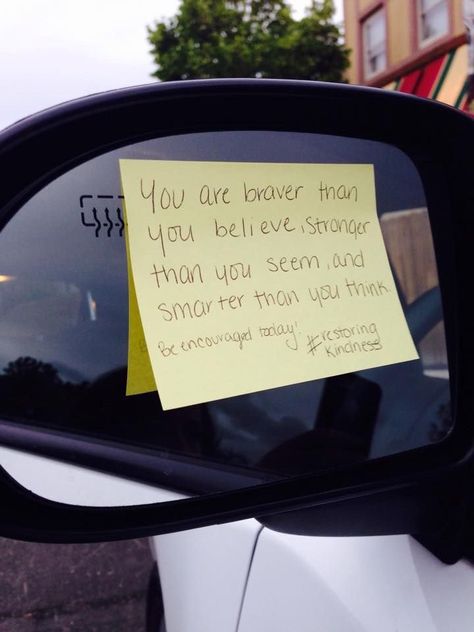 You are braver than
you believe, stronger
than you seem, and
smarter than you think.
Be encouraged today!
#restoring
kindness